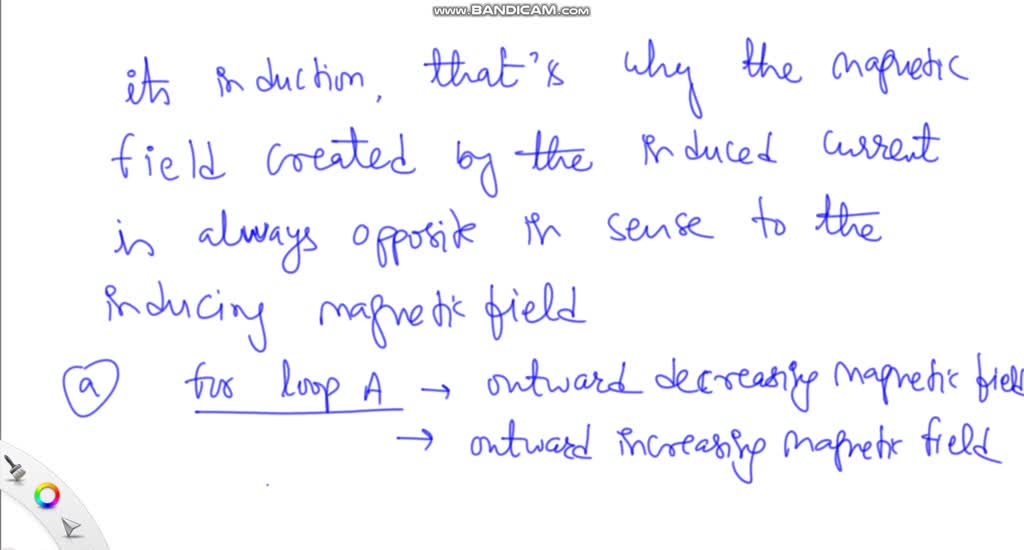 www.BANDICAM.com
its induction, that's why the magnetic
field created by the induced current
is always opposite in sense to the
inducing magnetic field
a for loop A → outward decreasing magnetic field
→ outward increasing magnetic field